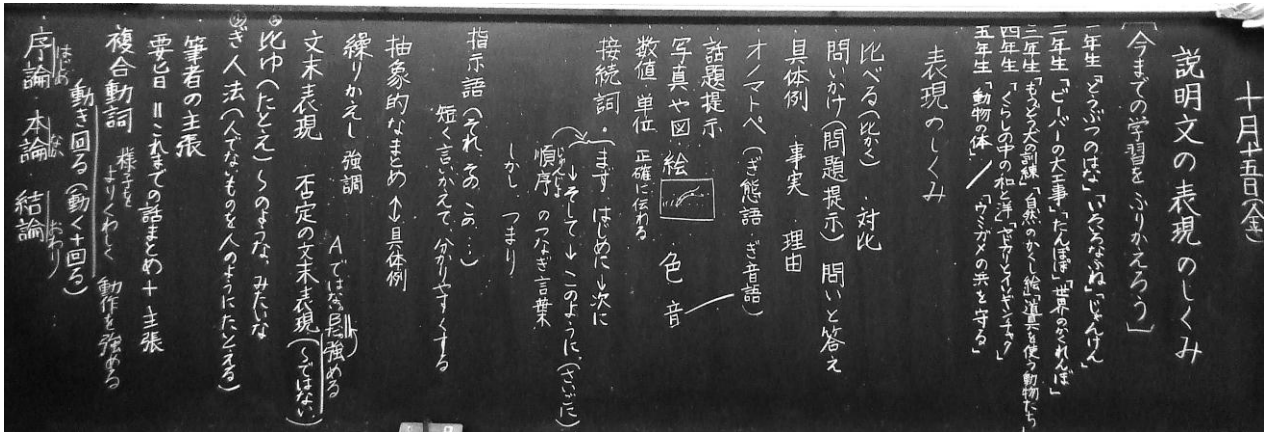 十月十五日(金)
説明文の表現のしくみ
〔今までの学習をふりかえろう〕
一年生「どうぶつのはな」「いろいろなふね」「じゃんけん」
二年生「ビーバーの大工事」「たんぽぽ」「世界のかくれんぼ」
三年生「もうどう犬の訓練」「自然のかくし絵」「道具を使う動物たち」
四年生「くらしの中の和と洋」「ヤドカリとイソギンチャク」
五年生「動物の体」「ウミガメの 命を守る」
表現のしくみ
比べる(比かく) 対比
問いかけ(問題提示) 問いと答え
具体例 事実 理由
オノマトペ(ぎ態語・ぎ音語)
話題提示
写真や図 絵 色 音
数値・単位 正確に伝わる
接続詞・(まず はじめに→次に
→そして→このように、(さいごに)
順序 のつなぎ言葉
じゅんじょ
しかし つまり
指示語(それ、その、この…)
短く言いかえて、分かりやすくする
抽象的なまとめ↑↓具体例
繰りかえし 強調
文末表現 否定の文末表現(〜ではない。)
Aではなく、B 強める
比ゆ(たとえ)〜のような、みたいな
ぎ人法(人でないものを人のようにたとえる)
筆者の主張
要旨=これまでの話まとめ+主張
複合動詞 様子を よりくわしく 動作を強める
動き回る(動く+回る)
序論 本論 結論
はじめ なか おわり